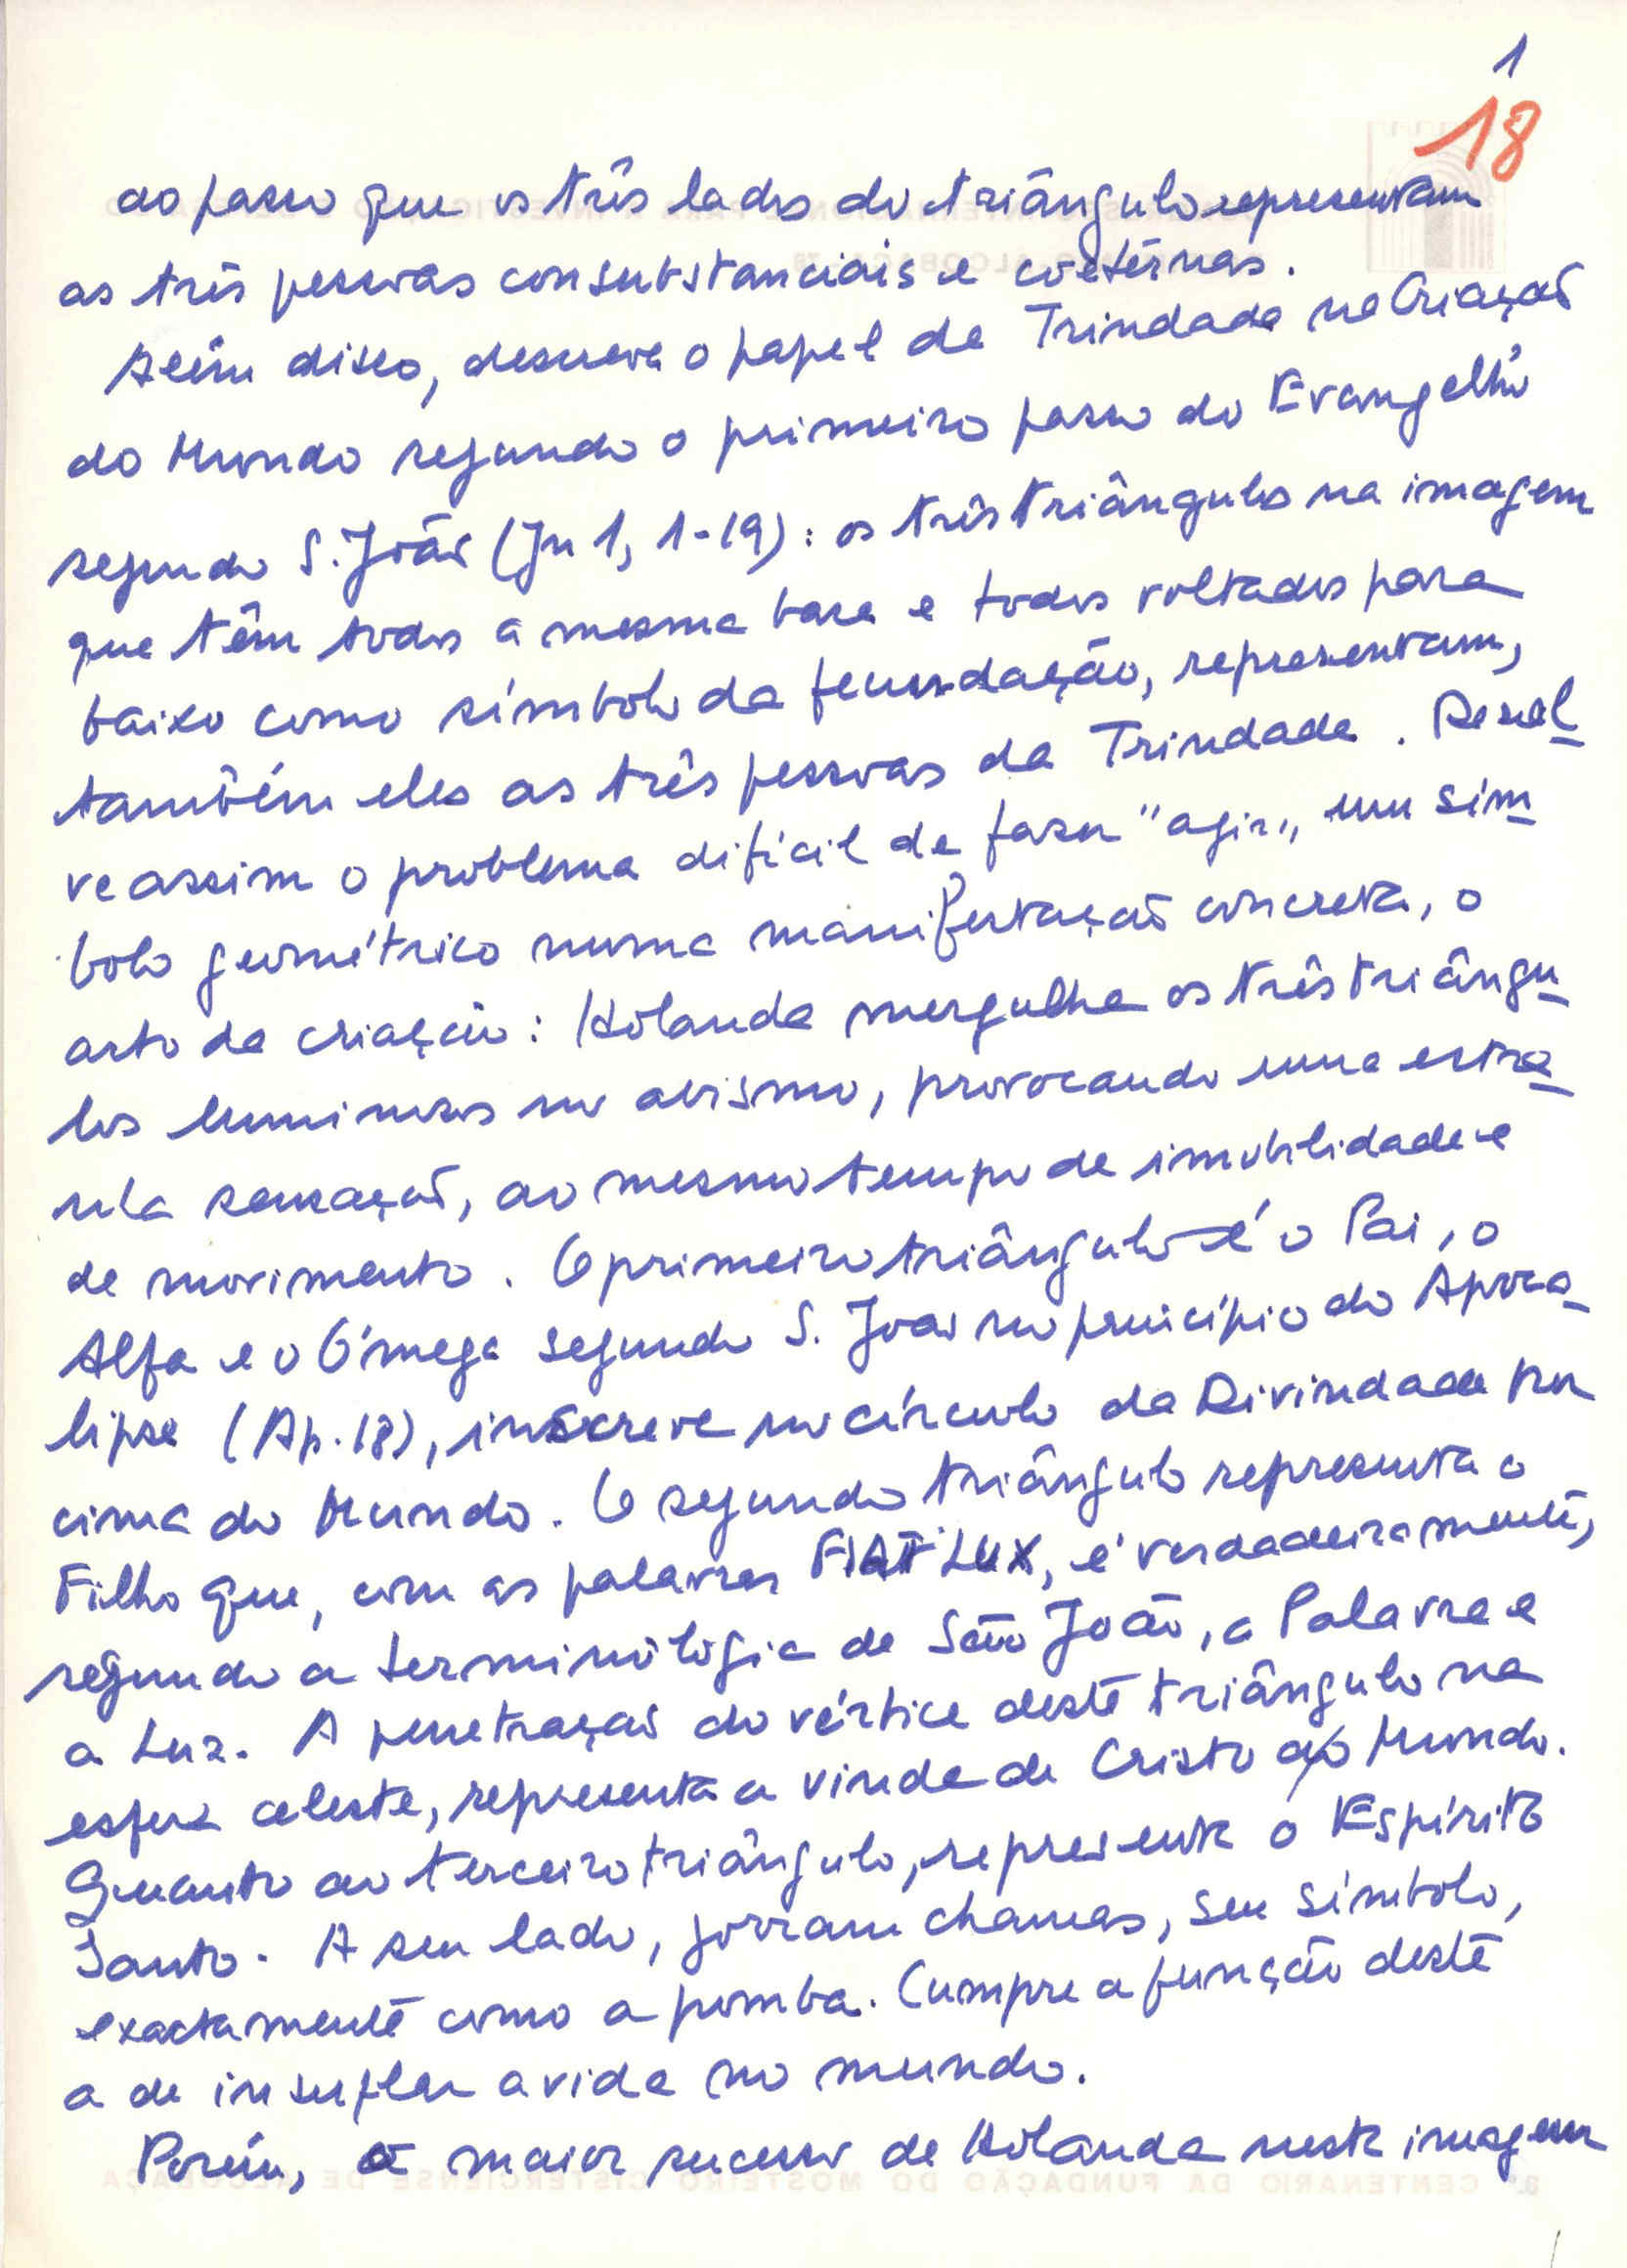 1
18
ao passo que os três lados do triângulo representam
as três pessoas consubstanciais e coetérnas.
Além disso, descreve o papel da Trindade na Criação
do Mundo segundo o primeiro passo do Evangelho
segundo S. João (Jn 1, 1-19): os três triângulos na imagem
que têm todos a mesma base e todos voltados para
baixo como símbolo da fecundação, representam,
também eles as três pessoas da Trindade. Resol-
ve assim o problema difícil de fazer "agir" um sím-
bolo geométrico numa manifestação concreta, o
acto da criação: Holanda mergulha os três triângu-
los luminosos no abismo, provocando uma estra-
nha sensação, ao mesmo tempo de imobilidade e
de movimento. O primeiro triângulo é o Pai, o
Alfa e o Ómega segundo S. João no princípio do Apoca-
lipse (Ap. 18), inscreve no círculo da Divindade por
cima do Mundo. O segundo triângulo representa o
Filho que, com as palavras FIAT LUX, é verdadeiramente,
segundo a terminologia de São João, a Palavra e
a Luz. A penetração do vértice deste triângulo na
esfera celeste, representa a vinda de Cristo ao Mundo.
Quanto ao terceiro triângulo, representa o Espírito
Santo. A seu lado, jorram chamas, seu símbolo,
exactamente como a pomba. Cumpre a função deste
a de insuflar a vida no mundo.
Porém, o maior sucesso de Holanda nesta imagem